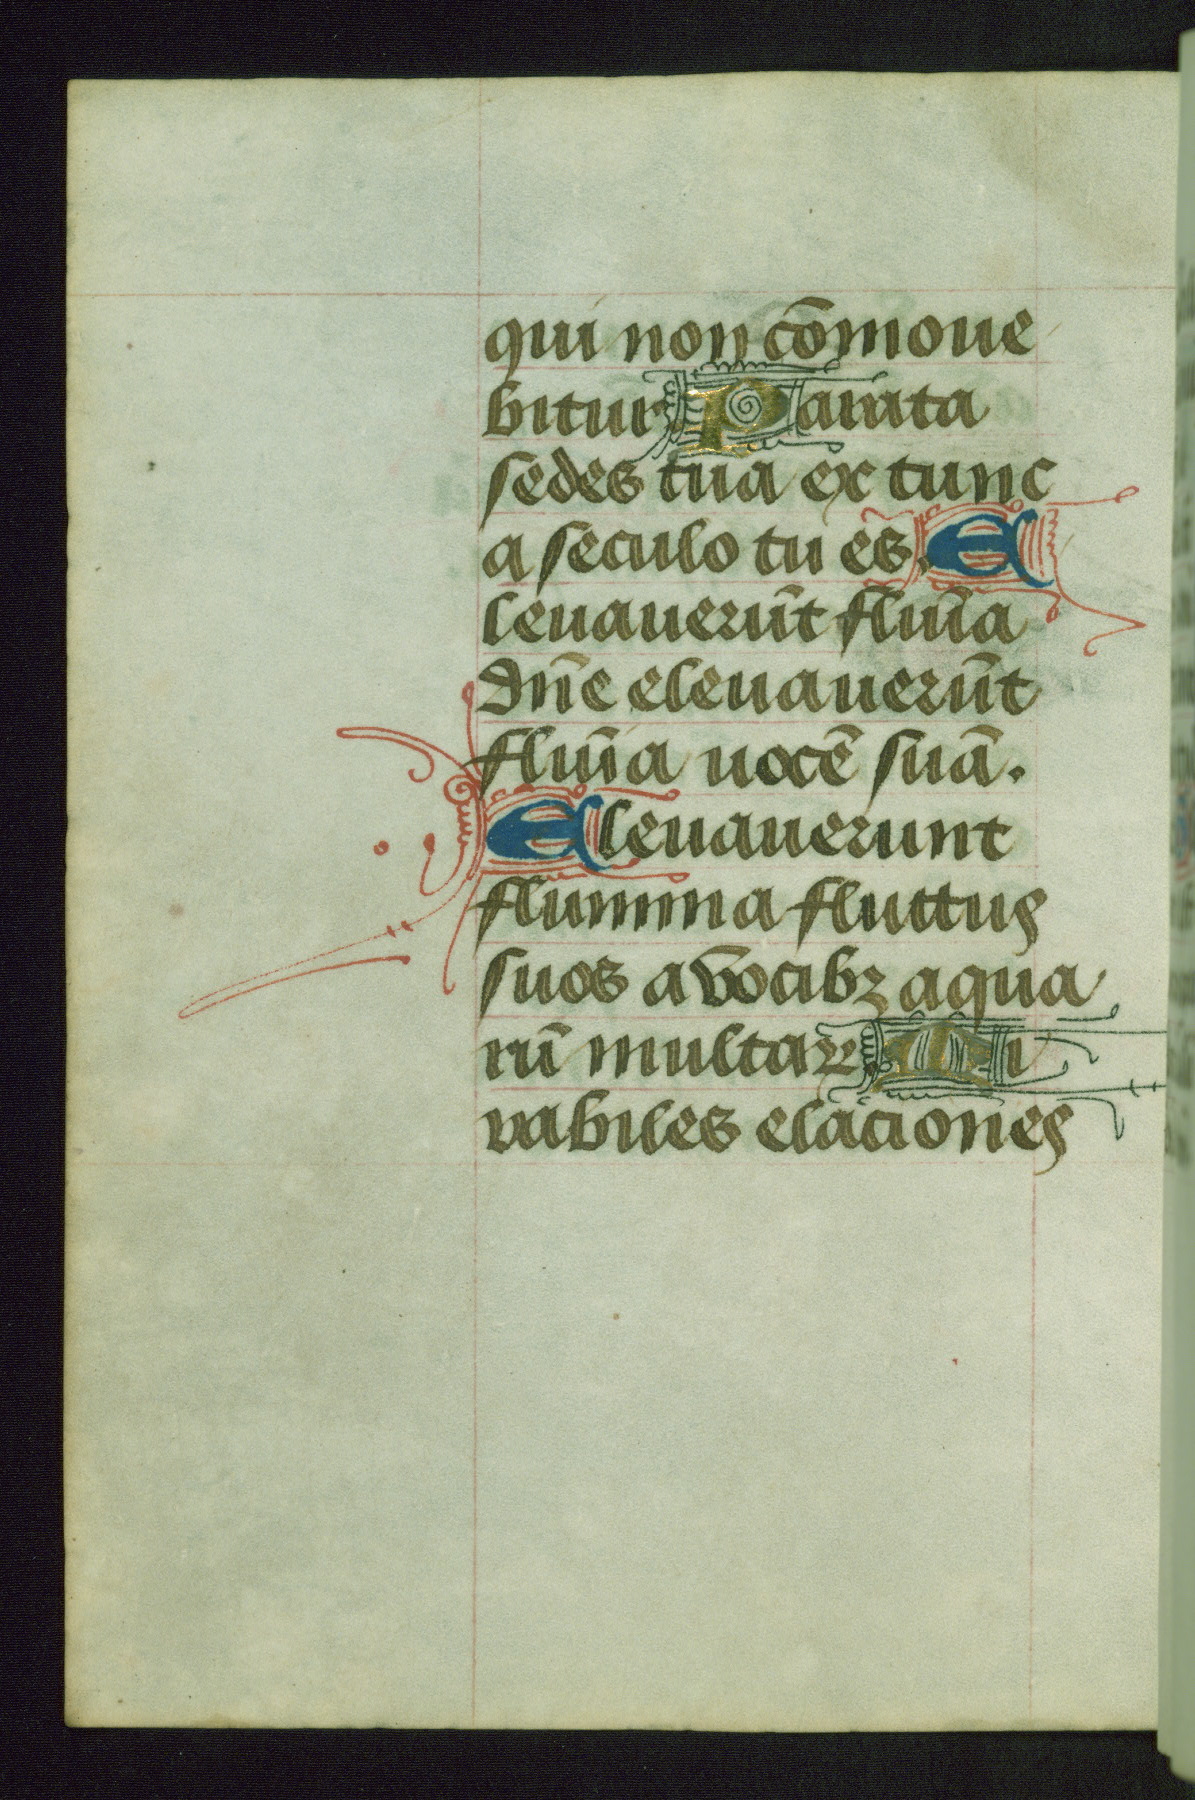 qui non cōmoue
bitur Parata
sedes tua ex tunc
a seculo tu es. E
leuauerūt flūīa
dn̄e eleuauerūt
flūīa uocē suā.
Eleuauerunt
flumina fluctus
suos a vocibꝫ aqua
rū multaꝝ Mi
rabiles elaciones